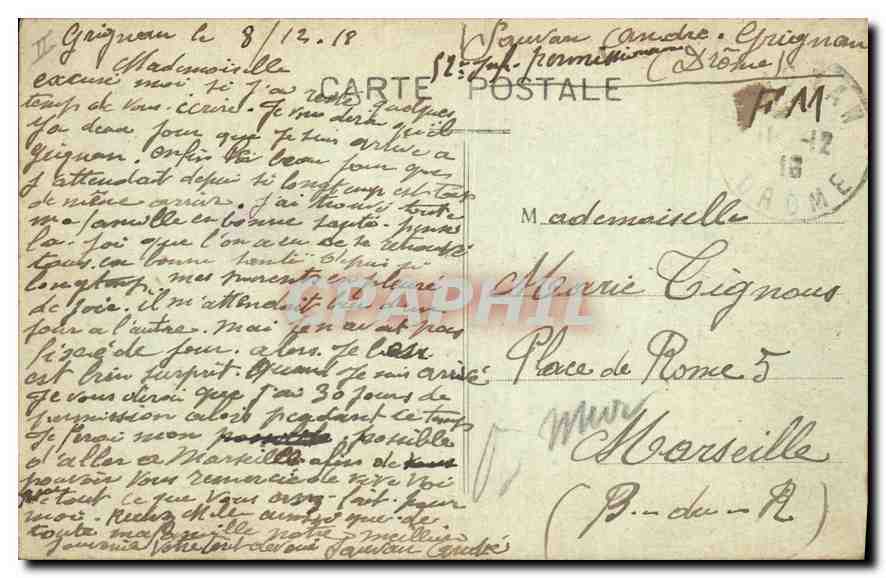 Grignan le 8/12.18
Mademoiselle
excusé moi si j'ai resté quelques
temps de vous écrire. Je vous dirai qu'il
y a deux jour que je suis arrivé a
Grignan. enfin le beau jour que
j'attendait depuis si longtemp est tout
de même arrivé. j'ai trouvé toute
ma famille en bonne santé. pensé
la joi que l'on a eu de se
tous en bonne santé depuis si
longtemp, mes parents en pleuré
de joie. il m'attendait
jour a l'autre. mai j'en avait pas
fixé de jour. alors je les
est bien surprit. Quand je suis arrivé
Je vous dirai que j'ai 30 jours de
permission alors pendant ce temps
je ferai mon possible
d'aller a Marseille afin de
pouvoir vous remercie de vive voi
de tout ce que vous avez fait pour
moi. Recevez Mlle que de
toute ma famille notre meilleur
souvenir Votre tout dévoué Sauvan André
Sauvan André. Grignan
52e permissionnaire
(Drôme)
CARTE POSTALE
FM
12
18
DROME
Mademoiselle
Marie Tignous
Place de Rome 5
Marseille
(B-du-R)
CPAPHIL